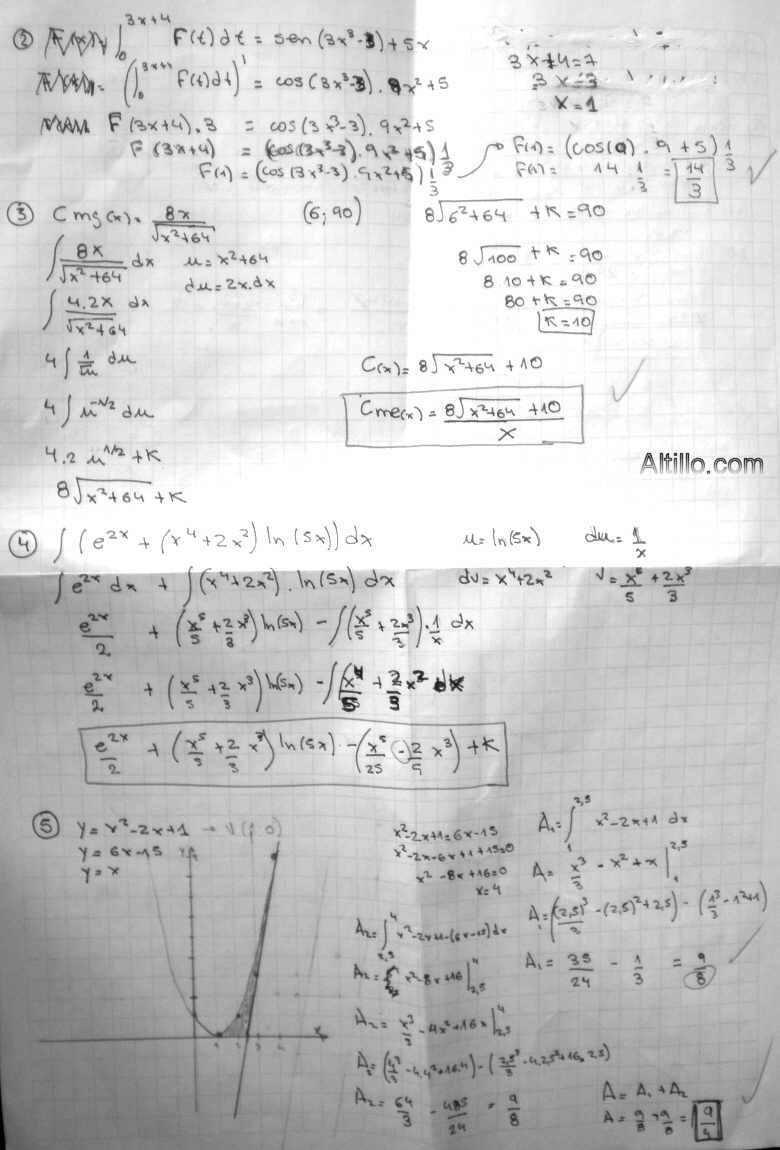 ② ∫₀^{3x+4} F(t)dt = sen(3x³-3)+5x
(∫₀^{3x+4} F(t)dt)' = cos(3x³-3).9x²+5
F(3x+4).3 = cos(3x³-3).9x²+5
F(3x+4) = (cos(3x³-3).9x²+5) 1/3
F(1) = (cos(3x³-3).9x²+5) 1/3
3x+4=7
3x=3
x=1
F(1)= (cos(0).9+5) 1/3
F(1)= 14 . 1/3 = 14/3
③ Cmg(x)= 8x/√(x²+64) (6;90)
∫ 8x/√(x²+64) dx u=x²+64
du=2x.dx
∫ 4.2x/√(x²+64) dx
4∫ 1/√u du
4∫ u^{-1/2} du
4.2 u^{1/2} + K
8√(x²+64) + K
8√(6²+64) + K=90
8√100 + K=90
8.10+K=90
80+K=90
K=10
C(x)= 8√(x²+64) +10
Cme(x)= (8√(x²+64) +10)/x
Altillo.com
④ ∫(e^{2x} + (x⁴+2x²) ln(5x)) dx u=ln(5x) du=1/x
∫e^{2x} dx + ∫(x⁴+2x²).ln(5x) dx dv=x⁴+2x² v=x⁵/5 + 2x³/3
e^{2x}/2 + (x⁵/5 + 2/3 x³) ln(5x) - ∫(x⁵/5 + 2x³/3).1/x dx
e^{2x}/2 + (x⁵/5 + 2/3 x³) ln(5x) - ∫(x⁴/5 + 2/3 x² dx
e^{2x}/2 + (x⁵/5 + 2/3 x³) ln(5x) - (x⁵/25 - 2/9 x³) + K
⑤ y=x²-2x+1 → V(1;0)
y=6x-15
y=x
x²-2x+1=6x-15
x²-2x-6x+1+15=0
x²-8x+16=0
x=4
A₁=∫₁^{2,5} x²-2x+1 dx
A= x³/3 - x²+x |₁^{2,5}
A₁=((2,5)³/3 -(2,5)²+2,5) - (1³/3 - 1²+1)
A₁= 35/24 - 1/3 = 9/8
A₂=∫_{2,5}^4 x²-2x+1-(6x-15)dx
A₂= x²-8x+16 |_{2,5}^4
A₂= x³/3 - 4x²+16x |_{2,5}^4
A₂=(4³/3 -4.4²+16.4) - (2,5³/3 -4.2,5²+16.2,5)
A₂= 64/3 - 485/24 = 9/8
A= A₁+A₂
A= 9/8 + 9/8 = 9/4